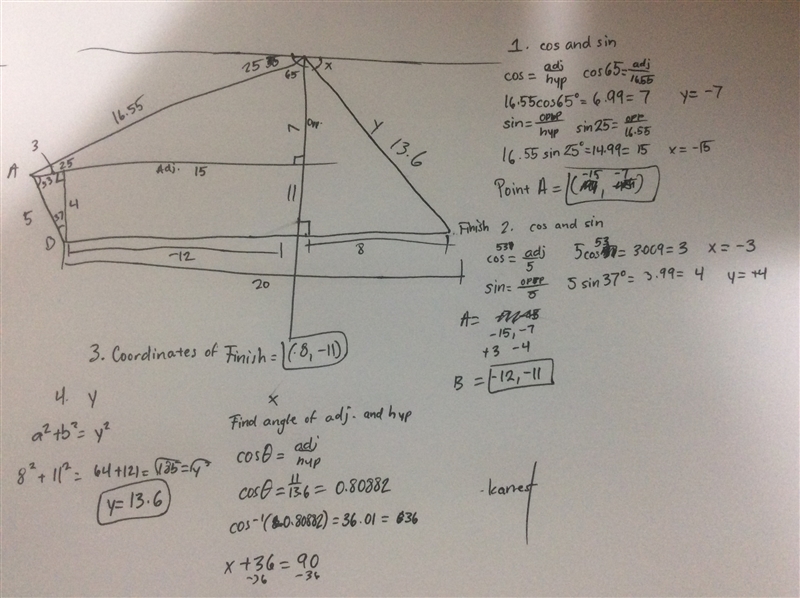 25
65
x
16.55
7
opp.
y
13.6
3
A
25
53
Adj. 15
5
4
37
11
D
Finish
-12
8
20
1. cos and sin
cos = adj/hyp cos65 = adj/16.55
16.55cos65° = 6.99 = 7 y = -7
sin = opp/hyp sin25 = opp/16.55
16.55 sin25° = 14.99 = 15 x = -15
Point A = (-15, -7)
2. cos and sin
cos 53° = adj/5 5cos53 = 3.009 = 3 x = -3
sin = opp/5 5 sin37° = 3.99 = 4 y = +4
A =
-15, -7
+3 -4
B = -12, -11
3. Coordinates of Finish = (8, -11)
4. y
a² + b² = y²
8² + 11² = 64 + 121 = √185 = √y²
y = 13.6
x
Find angle of adj. and hyp
cosθ = adj/hyp
cosθ = 11/13.6 = 0.80882
cos⁻¹(0.80882) = 36.01 = 36
x + 36 = 90
-36 -36